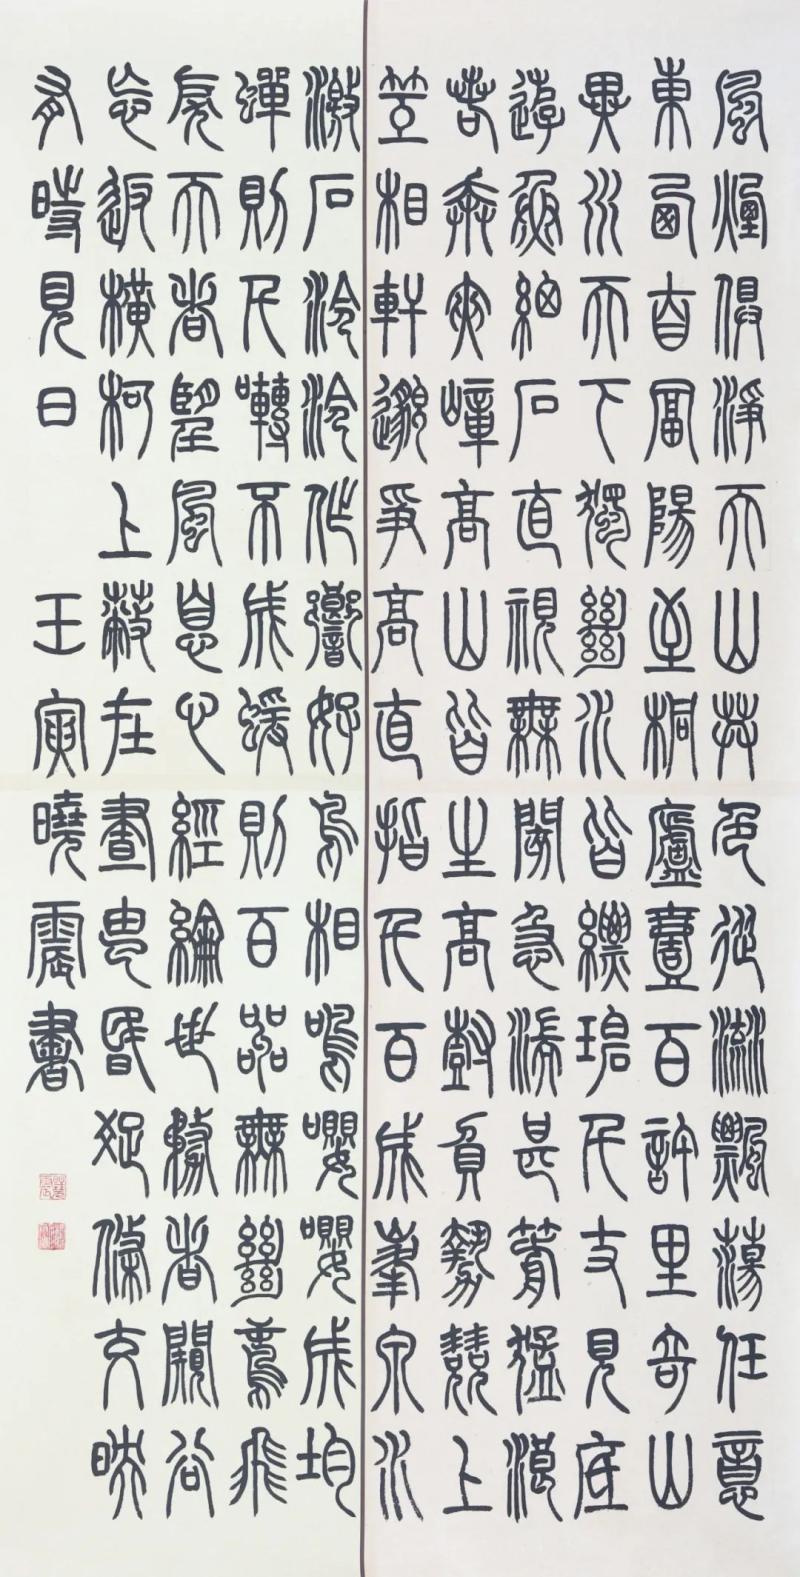 風煙俱淨天山共色從流飄蕩任意
東西自富陽至桐廬壹百許里奇山
異水天下獨絕水皆縹碧千丈見底
游魚細石直視無閡急湍甚箭猛浪
若奔夾嶂高山皆生高樹負勢競上
互相軒邈爭高直指千百成峯泉水
激石泠泠作響好鳥相鳴嚶嚶成均
蟬則千囀不成蝯則百嘂無絕鳶飛
戾天者望風息心經綸世務者闚谷
忘返橫柯上蔽在晝猶昏疏條交映
有時見日 壬寅曉震書